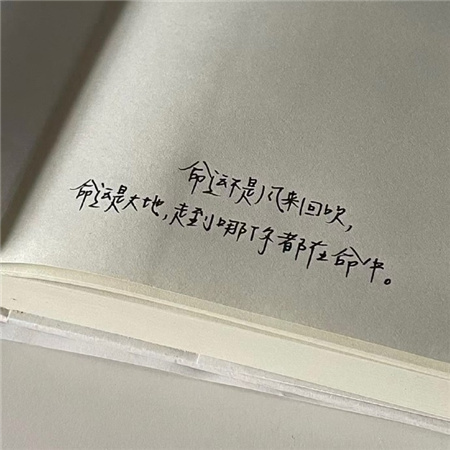 命运不是风来回吹,
命运是大地,走到哪你都在命中。